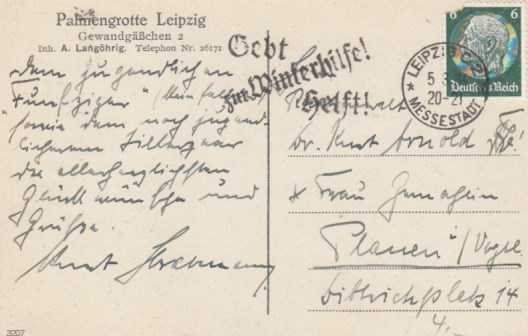 Palmengrotte Leipzig
Gewandgäßchen 2
Inh. A. Langöhrig. Telephon Nr. 26171
Dem jugendlichen
"Fünfziger"
sowie dem noch jugend-
licheren
die allerherzlichsten
Glückwünsche und
Grüsse.
Kurt
Gebt
zur Winterhilfe!
Helft!
6 6
Deutsches Reich
LEIPZIG C2
5.3
20-21
MESSESTADT
Dr. Kurt Arnold
Frau Gemahlin
Plauen i/Vogtl.
Dittrichplatz 14
3207